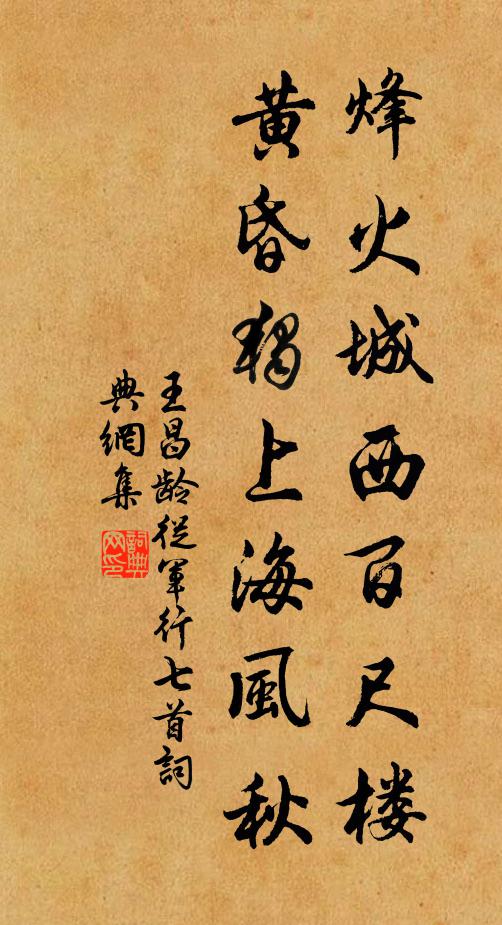 烽火城西百尺楼
黄昏獨上海風秋
王昌龄從軍行七首詞
典網集
詞典网印